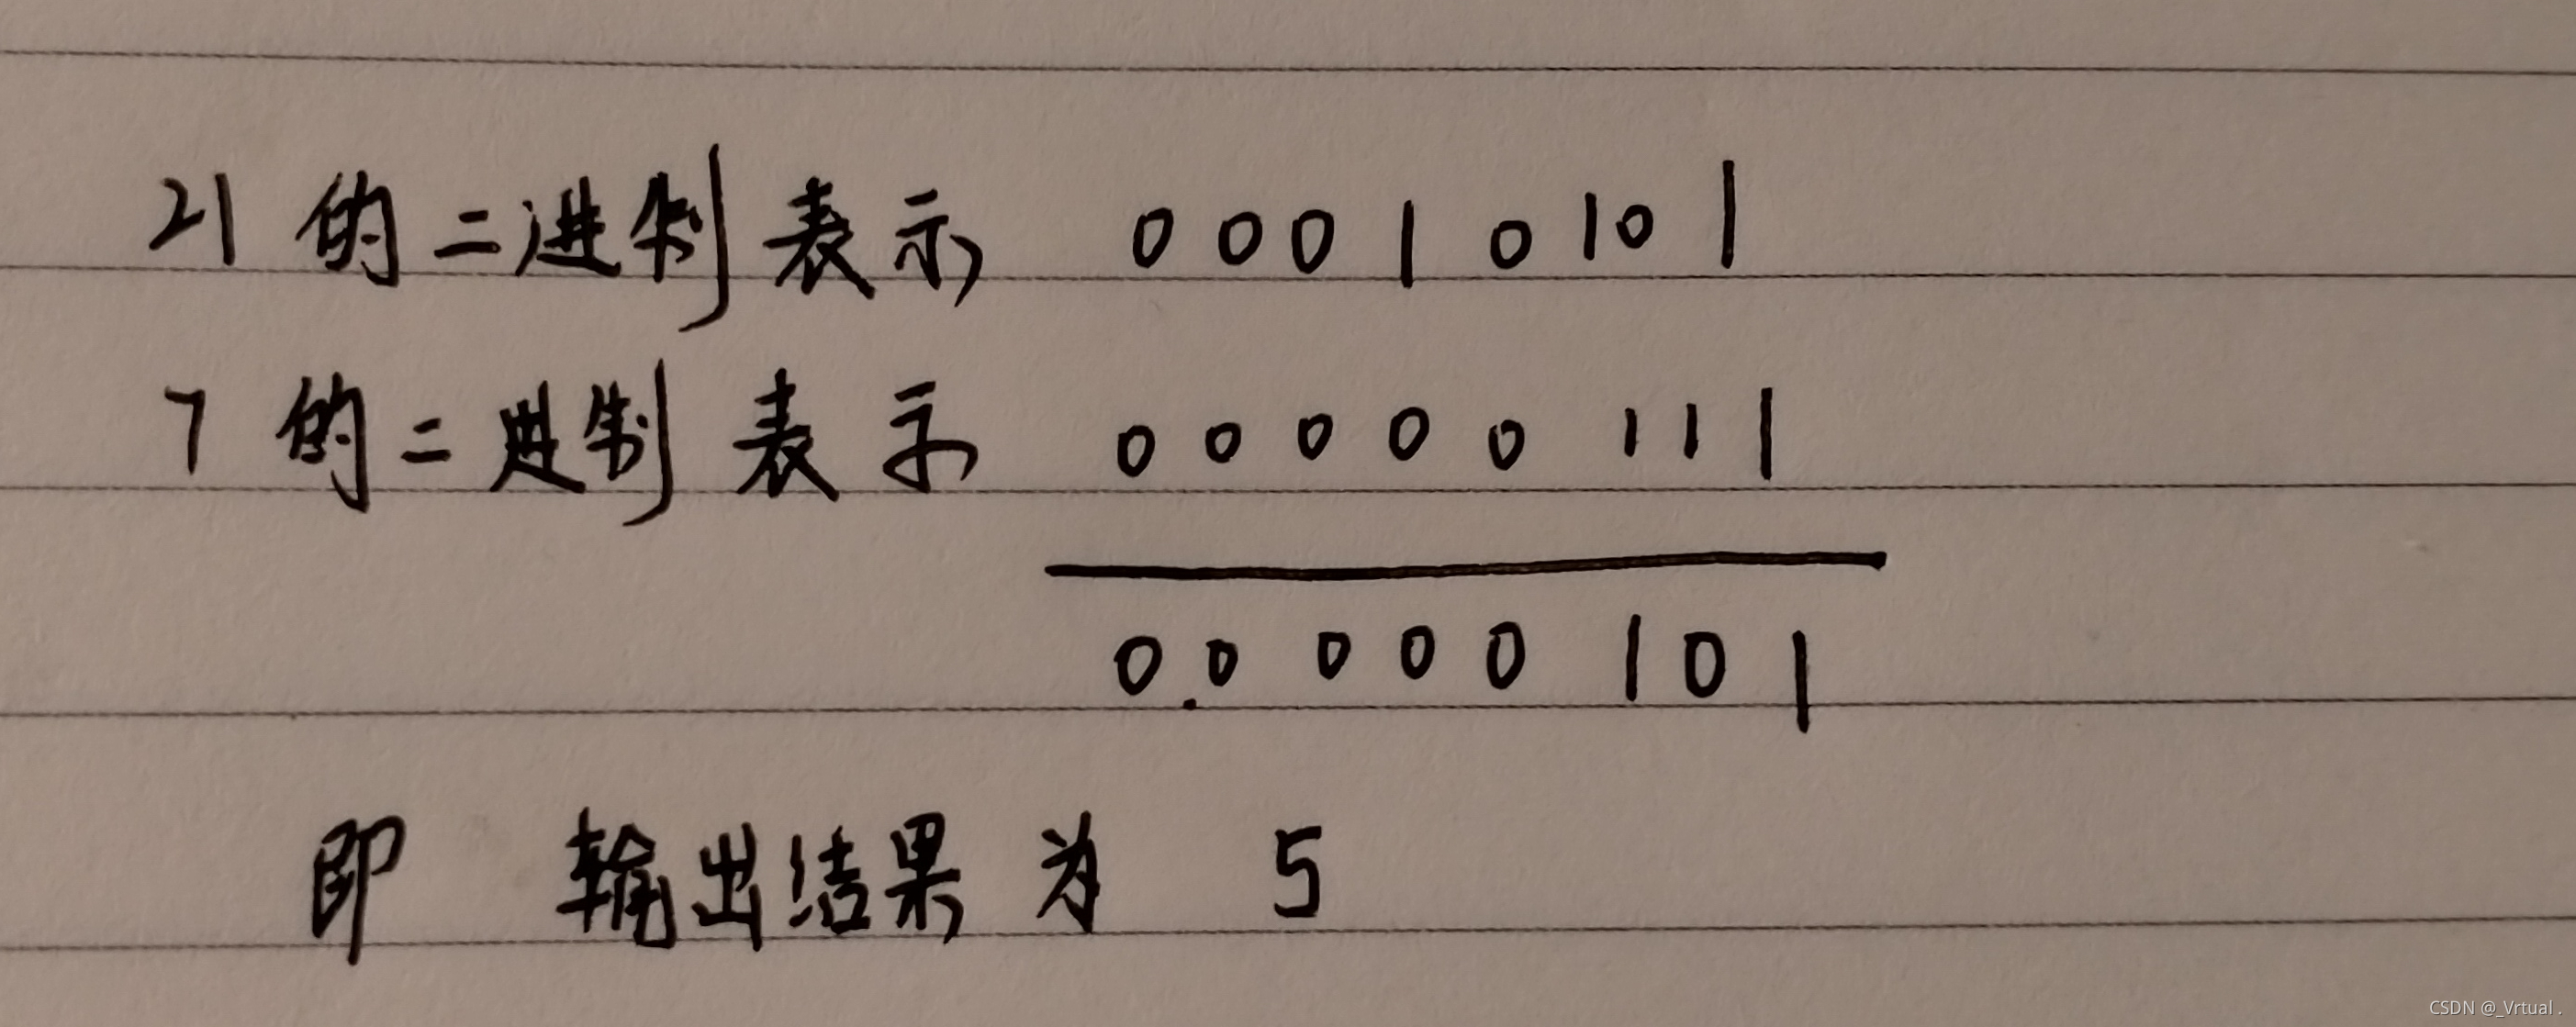 21 的二进制表示 0 0 0 1 0 1 0 1
7 的二进制表示 0 0 0 0 0 1 1 1
0.0 0 0 0 1 0 1
即 输出结果为 5
CSDN @_Vrtual .